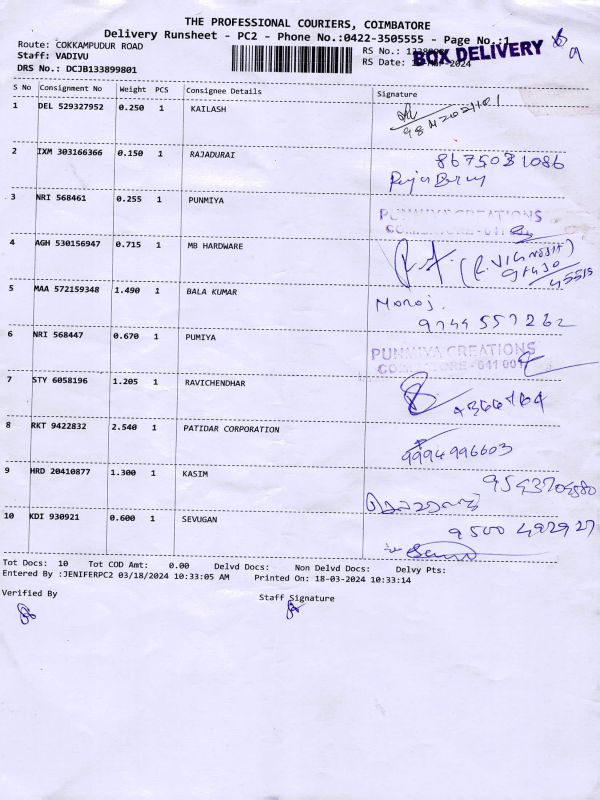 THE PROFESSIONAL COURIERS, COIMBATORE
Delivery Runsheet - PC2 - Phone No.:0422-3505555 - Page No.:1
Route: COKKAMPUDUR ROAD
RS No.:
BOX DELIVERY
Staff: VADIVU
RS Date: -2024
DRS No.: DCJB133899801
S No Consignment No Weight PCS Consignee Details Signature
1 DEL 529327952 0.250 1 KAILASH
2 IXM 303166366 0.150 1 RAJADURAI 8675031086
3 NRI 568461 0.255 1 PUNMIYA
PUNMIYA CREATIONS
4 AGH 530156947 0.715 1 MB HARDWARE
5 MAA 572159348 1.490 1 BALA KUMAR Manoj.
9744557262
6 NRI 568447 0.670 1 PUMIYA
PUNMIYA CREATIONS
7 STY 6058196 1.205 1 RAVICHENDHAR
8 RKT 9422832 2.540 1 PATIDAR CORPORATION
9994996603
9 HRD 20410877 1.300 1 KASIM
10 KDI 930921 0.600 1 SEVUGAN 9500492927
Tot Docs: 10 Tot COD Amt: 0.00 Delvd Docs: Non Delvd Docs: Delvy Pts:
Entered By :JENIFERPC2 03/18/2024 10:33:05 AM Printed On: 18-03-2024 10:33:14
Verified By Staff Signature